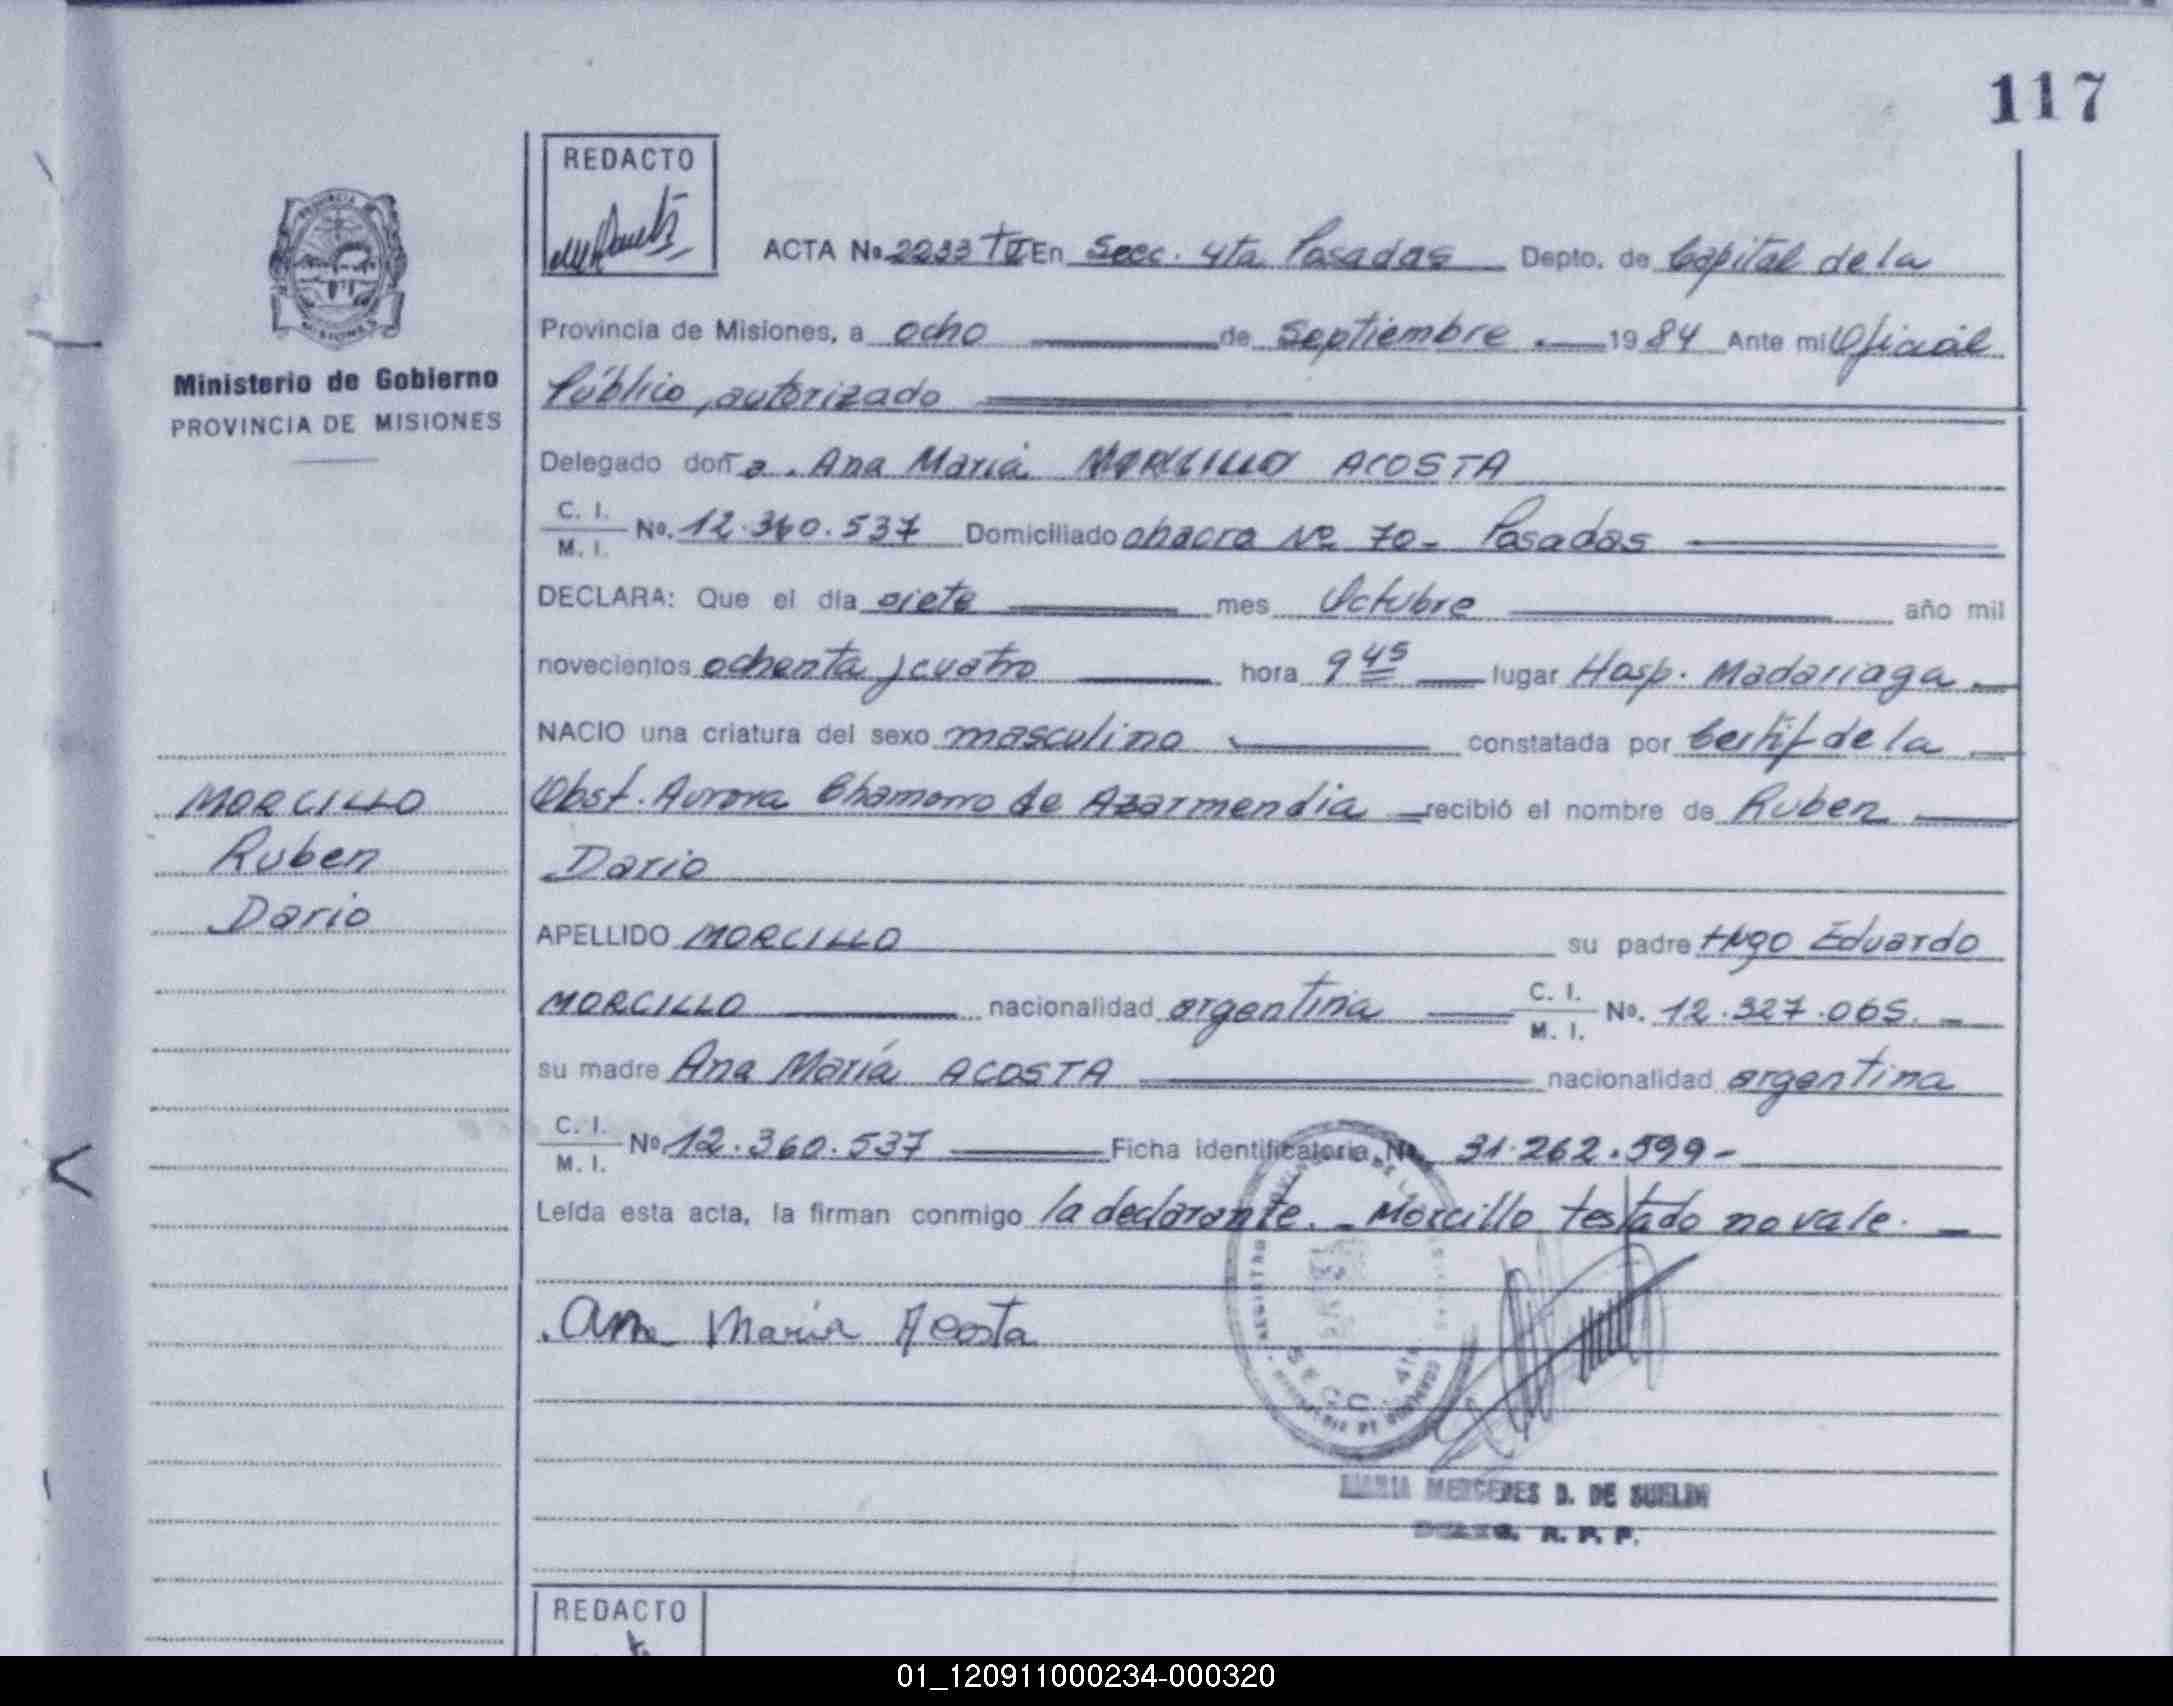 117
REDACTO
ACTA No. 2233 TII En Secc. 4ta. Posadas Depto. de Capital de la
Provincia de Misiones, a ocho de Septiembre 1984 Ante mi Oficial
Público, autorizado
Ministerio de Gobierno
PROVINCIA DE MISIONES
Delegado doña. Ana María MORCILLO ACOSTA
C. I.
M. I.
No. 12.360.537 Domiciliado chacra Nº 70- Posadas
DECLARA: Que el día siete mes Octubre año mil
novecientos ochenta y cuatro hora 9 45 lugar Hosp. Madariaga
NACIO una criatura del sexo masculino constatada por Certif de la
Obst. Aurora Chamorro de Azarmendia recibió el nombre de Ruben
Dario
MORCILLO
Ruben
Dario
APELLIDO MORCILLO su padre Hugo Eduardo
MORCILLO nacionalidad argentina C. I.
M. I. No. 12.327.065.
su madre Ana María ACOSTA nacionalidad argentina
C. I.
M. I.
No 12.360.537 Ficha identificatoria No. 31.262.599-
Leída esta acta, la firman conmigo la declarante. - Morcillo testado no vale. -
Ana María Acosta
SECC. 4ta.
MARIA MERCEDES D. DE SUELDI
R. P. P.
REDACTO
01_120911000234-000320